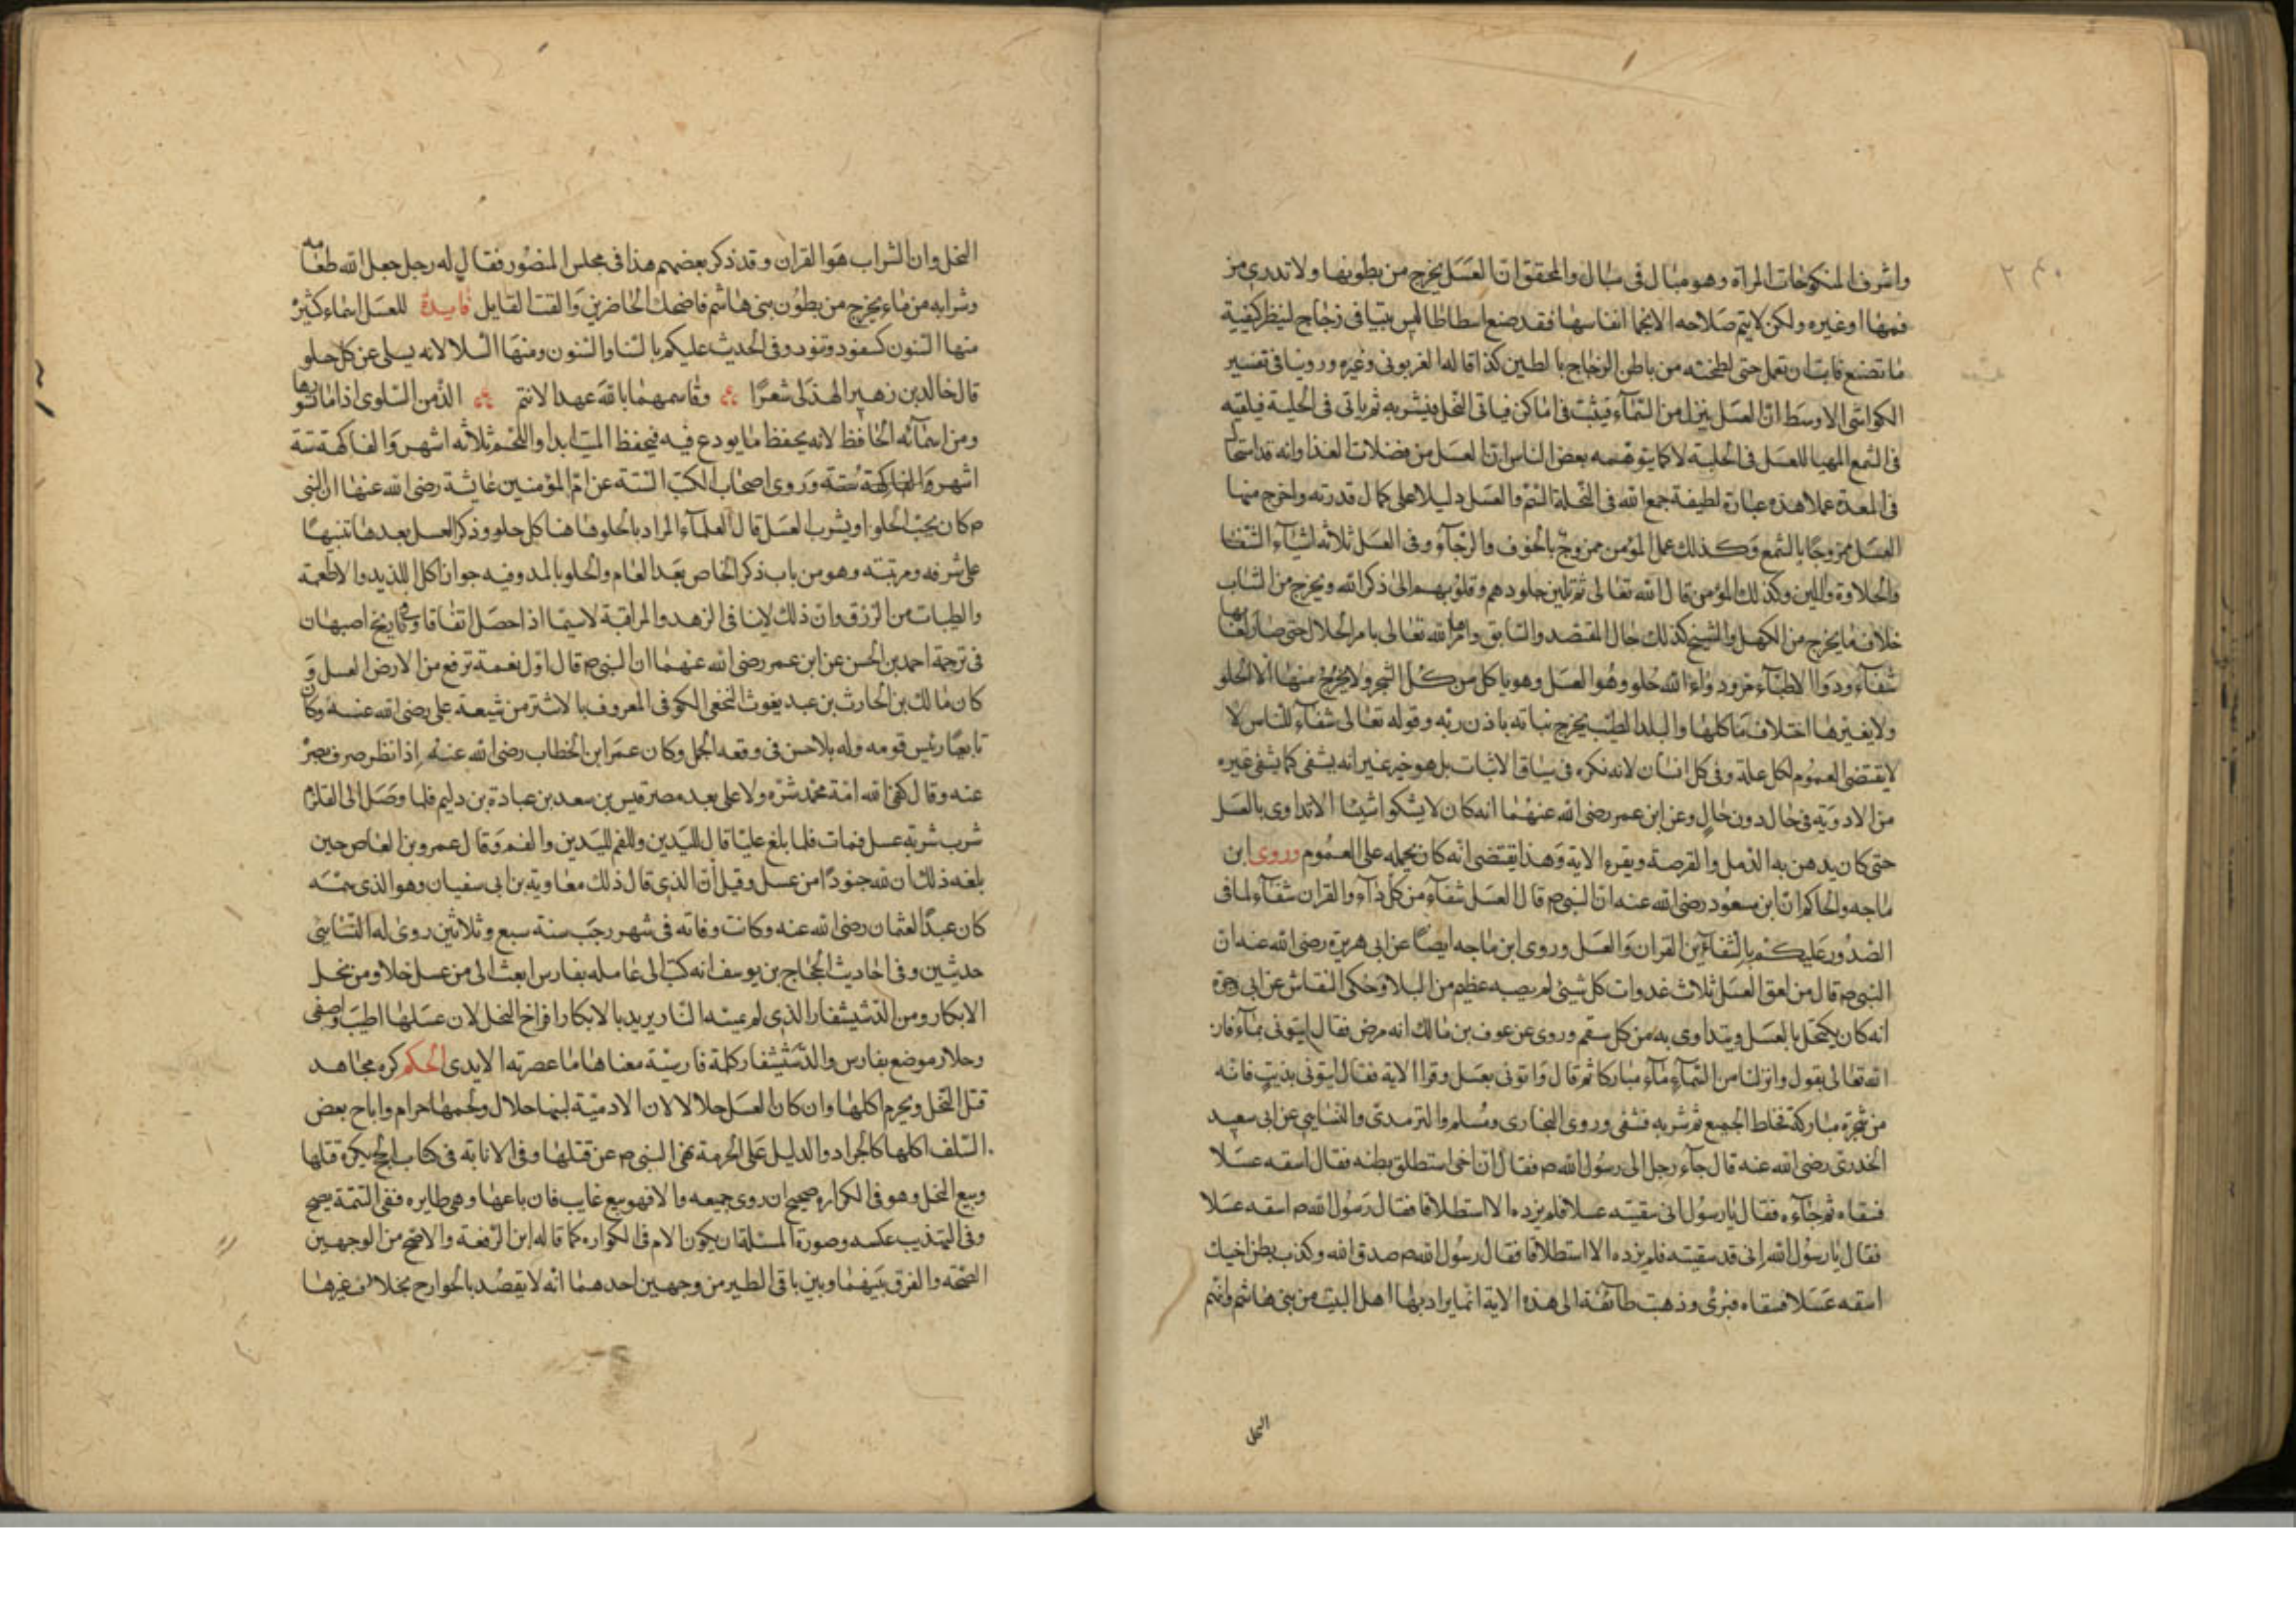 واشرف المنكوحات المراة وهو مبال فى مبال والمحققوان العسل يخرج من بطونها ولا تدرى من
فمها او غيره ولكن لا يتم صلاحه الا بحما انفاسها فقد صنع اسطاطاليس بيتا فى زجاج لينظر كيفية
ما تصنع فابت ان تعمل حتى لطخته من باطن الزجاج بالطين كذا قاله الغزنوى وغيره وروينا فى تفسير
الكواشى الاوسط ان العسل ينزل من السمآء فيثبت فى اماكن فياتى النحل فيشربه ثم ياتى فى الخلية فيلقيه
فى الشمع المهيا للعسل فى الخلية لا كما يتوهمه بعض الناس ان العسل من فضلات الغذا وانه قد استحا
فى المعدة عسلا هذه عبارة لطيفة جمع الله فى النحلة السم والعسل دليلا على كمال قدرته واخرج منها
العسل ممزوجا بالشمع وكذلك عمل المؤمن ممزوج بالخوف والرجآؤ وفى العسل ثلاثة اشيآء الشفا
والحلاوة واللين وكذلك المؤمن قال الله تعالى ثم تلين جلودهم وقلوبهم الى ذكر الله ويخرج من الشاب
خلاف ما يخرج من الكهل والشيخ كذلك حال المقتصد والسابق وامرها الله تعالى بامر الحلال حتى صار لعابها
شفآء ودوا الاطبآء مر ودواء الله حلو وهو العسل وهو ياكل من كل الشجر ولا يخرج منها الا الحلو
ولا يغيرها اختلاف ماكلها والبلد الطيب يخرج نباته باذن ربه وقوله تعالى شفآء للناس لا
لا يقتضى العموم لكل علة وفى كل انسان لانه نكره فى سياق الاثبات بل هو خبر عن انه يشفى كما يشفى غيره
من الادوية فى حال دون حال وعن ابن عمر رضى الله عنهما انه كان لا يشكو اشيئا الا تداوى بالعسل
حتى كان يدهن به الدمل والقرصة ويقرء الاية وهذا يقتضى انه كان يحمله على العموم وروى ابن
ماجه والحاكم ان ابن مسعود رضى الله عنه ان النبى م قال العسل شفآء من كل دآء والقران شفآء لما فى
الصدور عليكم بالشفآئين القران والعسل وروى ابن ماجه ايضا عن ابى هريرة رضى الله عنه ان
النبى م قال من لعق العسل ثلاث غدوات كل شيئ لم يصبه عظيم من البلاؤ وحكى النقاش عن ابى وجزة
انه كان يكتحل بالعسل ويتداوى به من كل سقم وروى عن عوف بن مالك انه مرض فقال ايتونى بمآء فان
الله تعالى يقول وانزلنا من السمآء مآء مباركا ثم قال واتونى بعسل وقرا الاية فقال ايتونى بزيت فانه
من شجرة مباركة فخلط الجميع ثم شربه فشفى وروى البخارى ومسلم والترمدى والنسايى عن ابى سعيد
الخدرى رضى الله عنه قال جآء رجل الى رسول الله م فقال ان اخى استطلق بطنه فقال اسقه عسلا
فسقاه ثم جآءه فقال يا رسول انى سقيته عسلا فلم يزده الا استطلاقا فقال رسول الله م اسقه عسلا
فقال يا رسول الله انى قد سقيته فلم يزده الا استطلاقا فقال رسول الله م صدق الله وكذب بطن اخيك
اسقه عسلا فسقاه فبرئ وذهبت طآئفة الى هذه الاية انما يراد بها اهل البيت من بنى هاشم وانهم
النحل
النحل وان الشراب هو القران وقد ذكر بعضهم هذا فى مجلس المنصور فقال له رجل جعل الله طعامه
وشرابه من ماء يخرج من بطون بنى هاشم فاضحك الحاضرين والقت القايل فايدة للعسل اسماء كثيره
منها السنون كسفود وتنود وفى الحديث عليكم بالسنا والسنون ومنها السلا لانه يسلى عن كل حلو
قال خالد بن زهير الهذلى شعرا وقاسمهما بالله عهدا لانتم الذ من السلوى اذا ما تشو بها
ومن اسمآئه الحافظ لانه يحفظ ما يودع فيه فيحفظ الميت ابدا واللحم ثلاثه اشهر والفاكهة ستة
اشهر والفاكهة ستة وروى اصحاب الكتب الستة عن ام المؤمنين عايشة رضى الله عنها ان النبى
م كان يحب الحلوا ويشرب العسل قال العلمآء المراد بالحلو ها هنا كل حلو وذكر العسل بعدها تنبيها
على شرفه ومرتبته وهو من باب ذكر الخاص بعد العام والحلو بالمد وفيه جواز اكل اللذيد والاطعمة
والطيبات من الرزق وان ذلك لا ينافى الزهد والمراقبة لا سيما اذا حصل اتفاقا وفى تاريخ اصبهان
فى ترجمة احمد بن الحسن عن ابن عمر رضى الله عنهما ان النبى م قال اول نعمة ترفع من الارض العسل و
كان مالك بن الحارث بن عبد يغوث النخعى الكوفى المعروف بالاشتر من شيعة على رضى الله عنه وكان
تابعيا رئيس قومه وله بلا حسن فى وقعه الجمل وكان عمر ابن الخطاب رضى الله عنه اذا نظر صرف بصره
عنه وقال كفى الله امة محمد شره ولاه على بعد مصر قيس بن سعد بن عبادة بن دليم فلما وصل الى القلزم
شرب شربة عسل فمات فلما بلغ عليا قال لليدين وللفم لليدين والفم وقال عمرو بن العاص حين
بلغه ذلك ان لله جنودا من عسل وقيل ان الذى قال ذلك معاوية بن ابى سفيان وهو الذى سمه
كان عبدا لعثمان رضى الله عنه وكانت وفاته فى شهر رجب سنة سبع وثلاثين روى له النسايى
حديثين وفى احاديث الحجاج بن يوسف انه كتب الى عامله بفارس ابعث الى من عسل خلار ومن نحل
الابكار ومن الدستشفار الذى لم يمسه النار يريد بالابكار افراخ النحل لان عسلها اطيب واصفى
وخلار موضع بفارس والدستشفار كلمة فارسية معناها ما عصرته الايدى الحكم كره مجاهد
قتل النحل ويحرم اكلها وان كان العسل حلالا لان الادمية لبنها حلال ولحمها حرام واباح بعض
السلف اكلها كالجراد والدليل على الحرمة نهى النبى م عن قتلها وفى الابانة فى كتاب الحج يكره قتلها
وبيع النحل وهو فى الكواره صحيح ان روى جميعه والا فهو بيع غايب فان باعها وهى طايره ففى التتمة يصح
وفى التهذيب عكسه وصورة المسئلة ان يكون الام فى الكواره كما قاله ابن الرفعة والاصح من الوجهين
الصحة والفرق بينهما وبين باقى الطير من وجهين احدهما انه لا يقصد بالجوارح بخلاف غيرها